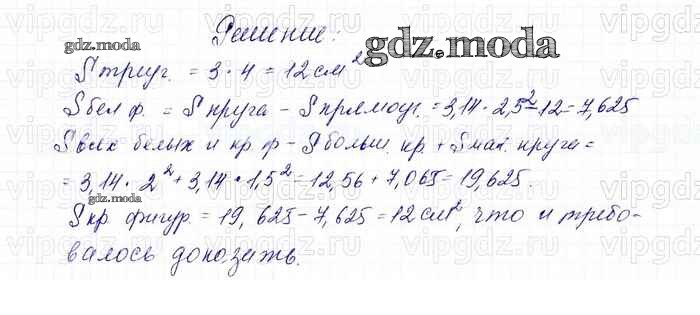 Решение:
gdz.moda
gdz.moda
S триуг. = 3 · 4 = 12 см²
S бел ф. = S круга – S прямоуг. = 3,14 · 2,5² – 12 = 7,625
S всех белых и кр ф – S больш. кр + S мал. круга =
= 3,14 · 2² + 3,14 · 1,5² = 12,56 + 7,065 = 19,625.
gdz.moda
S кр фигур. = 19,625 – 7,625 = 12 см², что и требо-
валось доказать.
vipgdz.ru